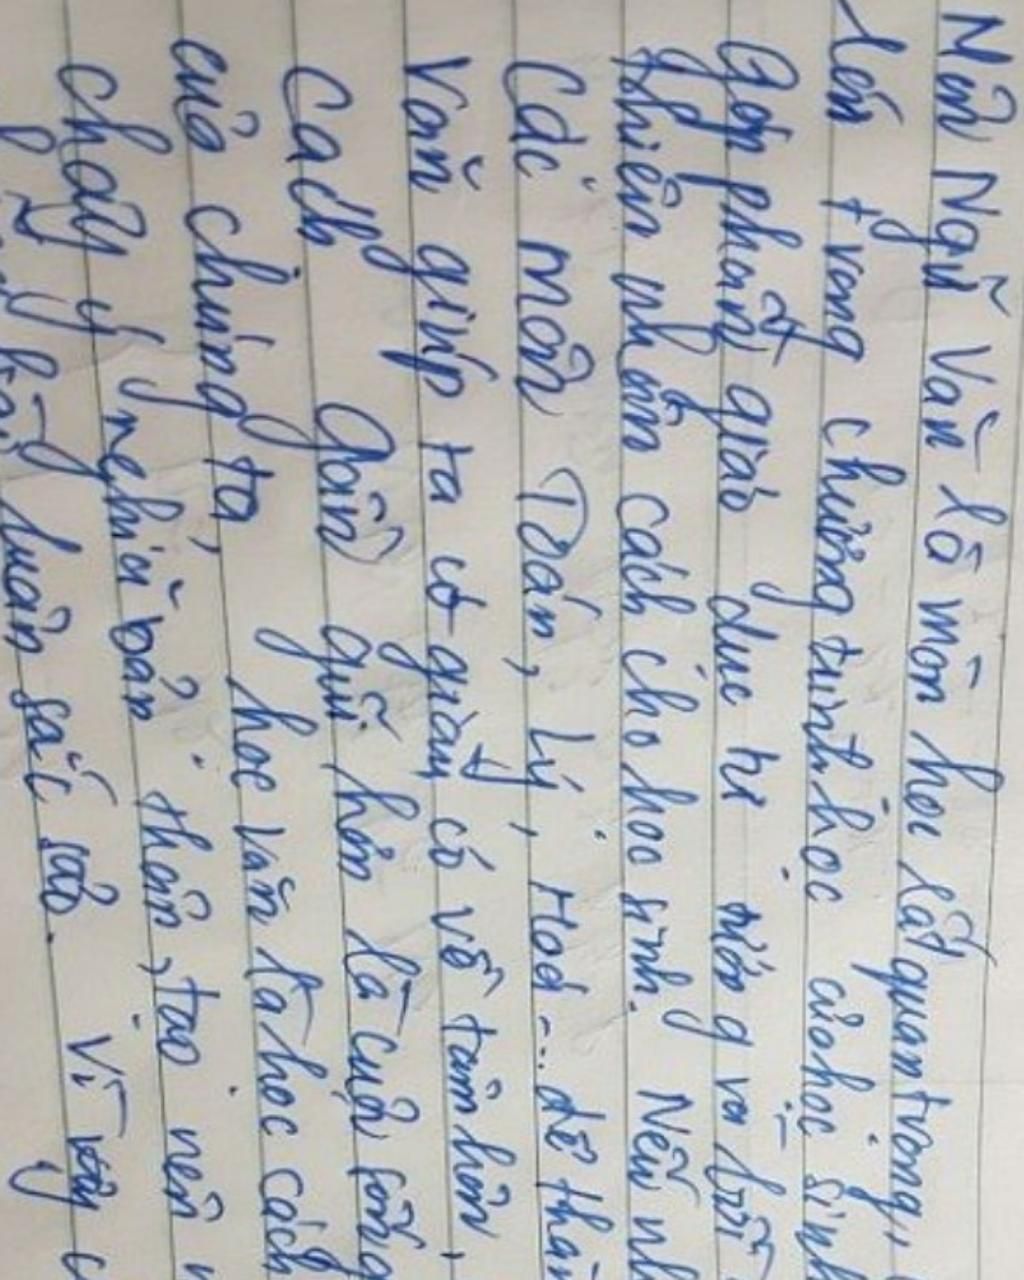 Môn Ngữ Văn là môn học rất quan trọng,
lớn trong chương trình học của học sinh
Góp phần giáo dục tư tưởng và bồi
thiện nhân cách cho học sinh. Nếu nh
Các môn Toán, Lý, Hoá... để thà
Văn giúp ta có giàu có về tâm hồn,
Cách gần gũi hơn là cuộc sống
của chúng ta, học văn là học cách
chảy ý nghĩa bản thân, tạo nên n
luận sắc sảo. Vì vậy c